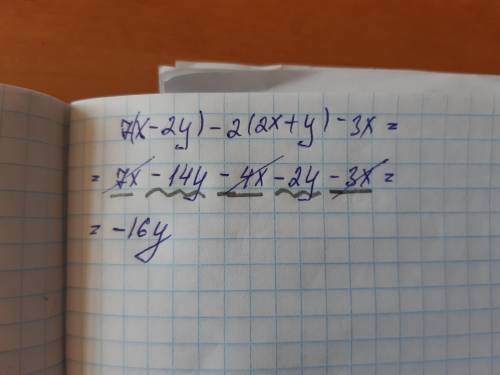 7(x-2y)-2(2x+y)-3x=
=7x-14y-4x-2y-3x=
=-16y